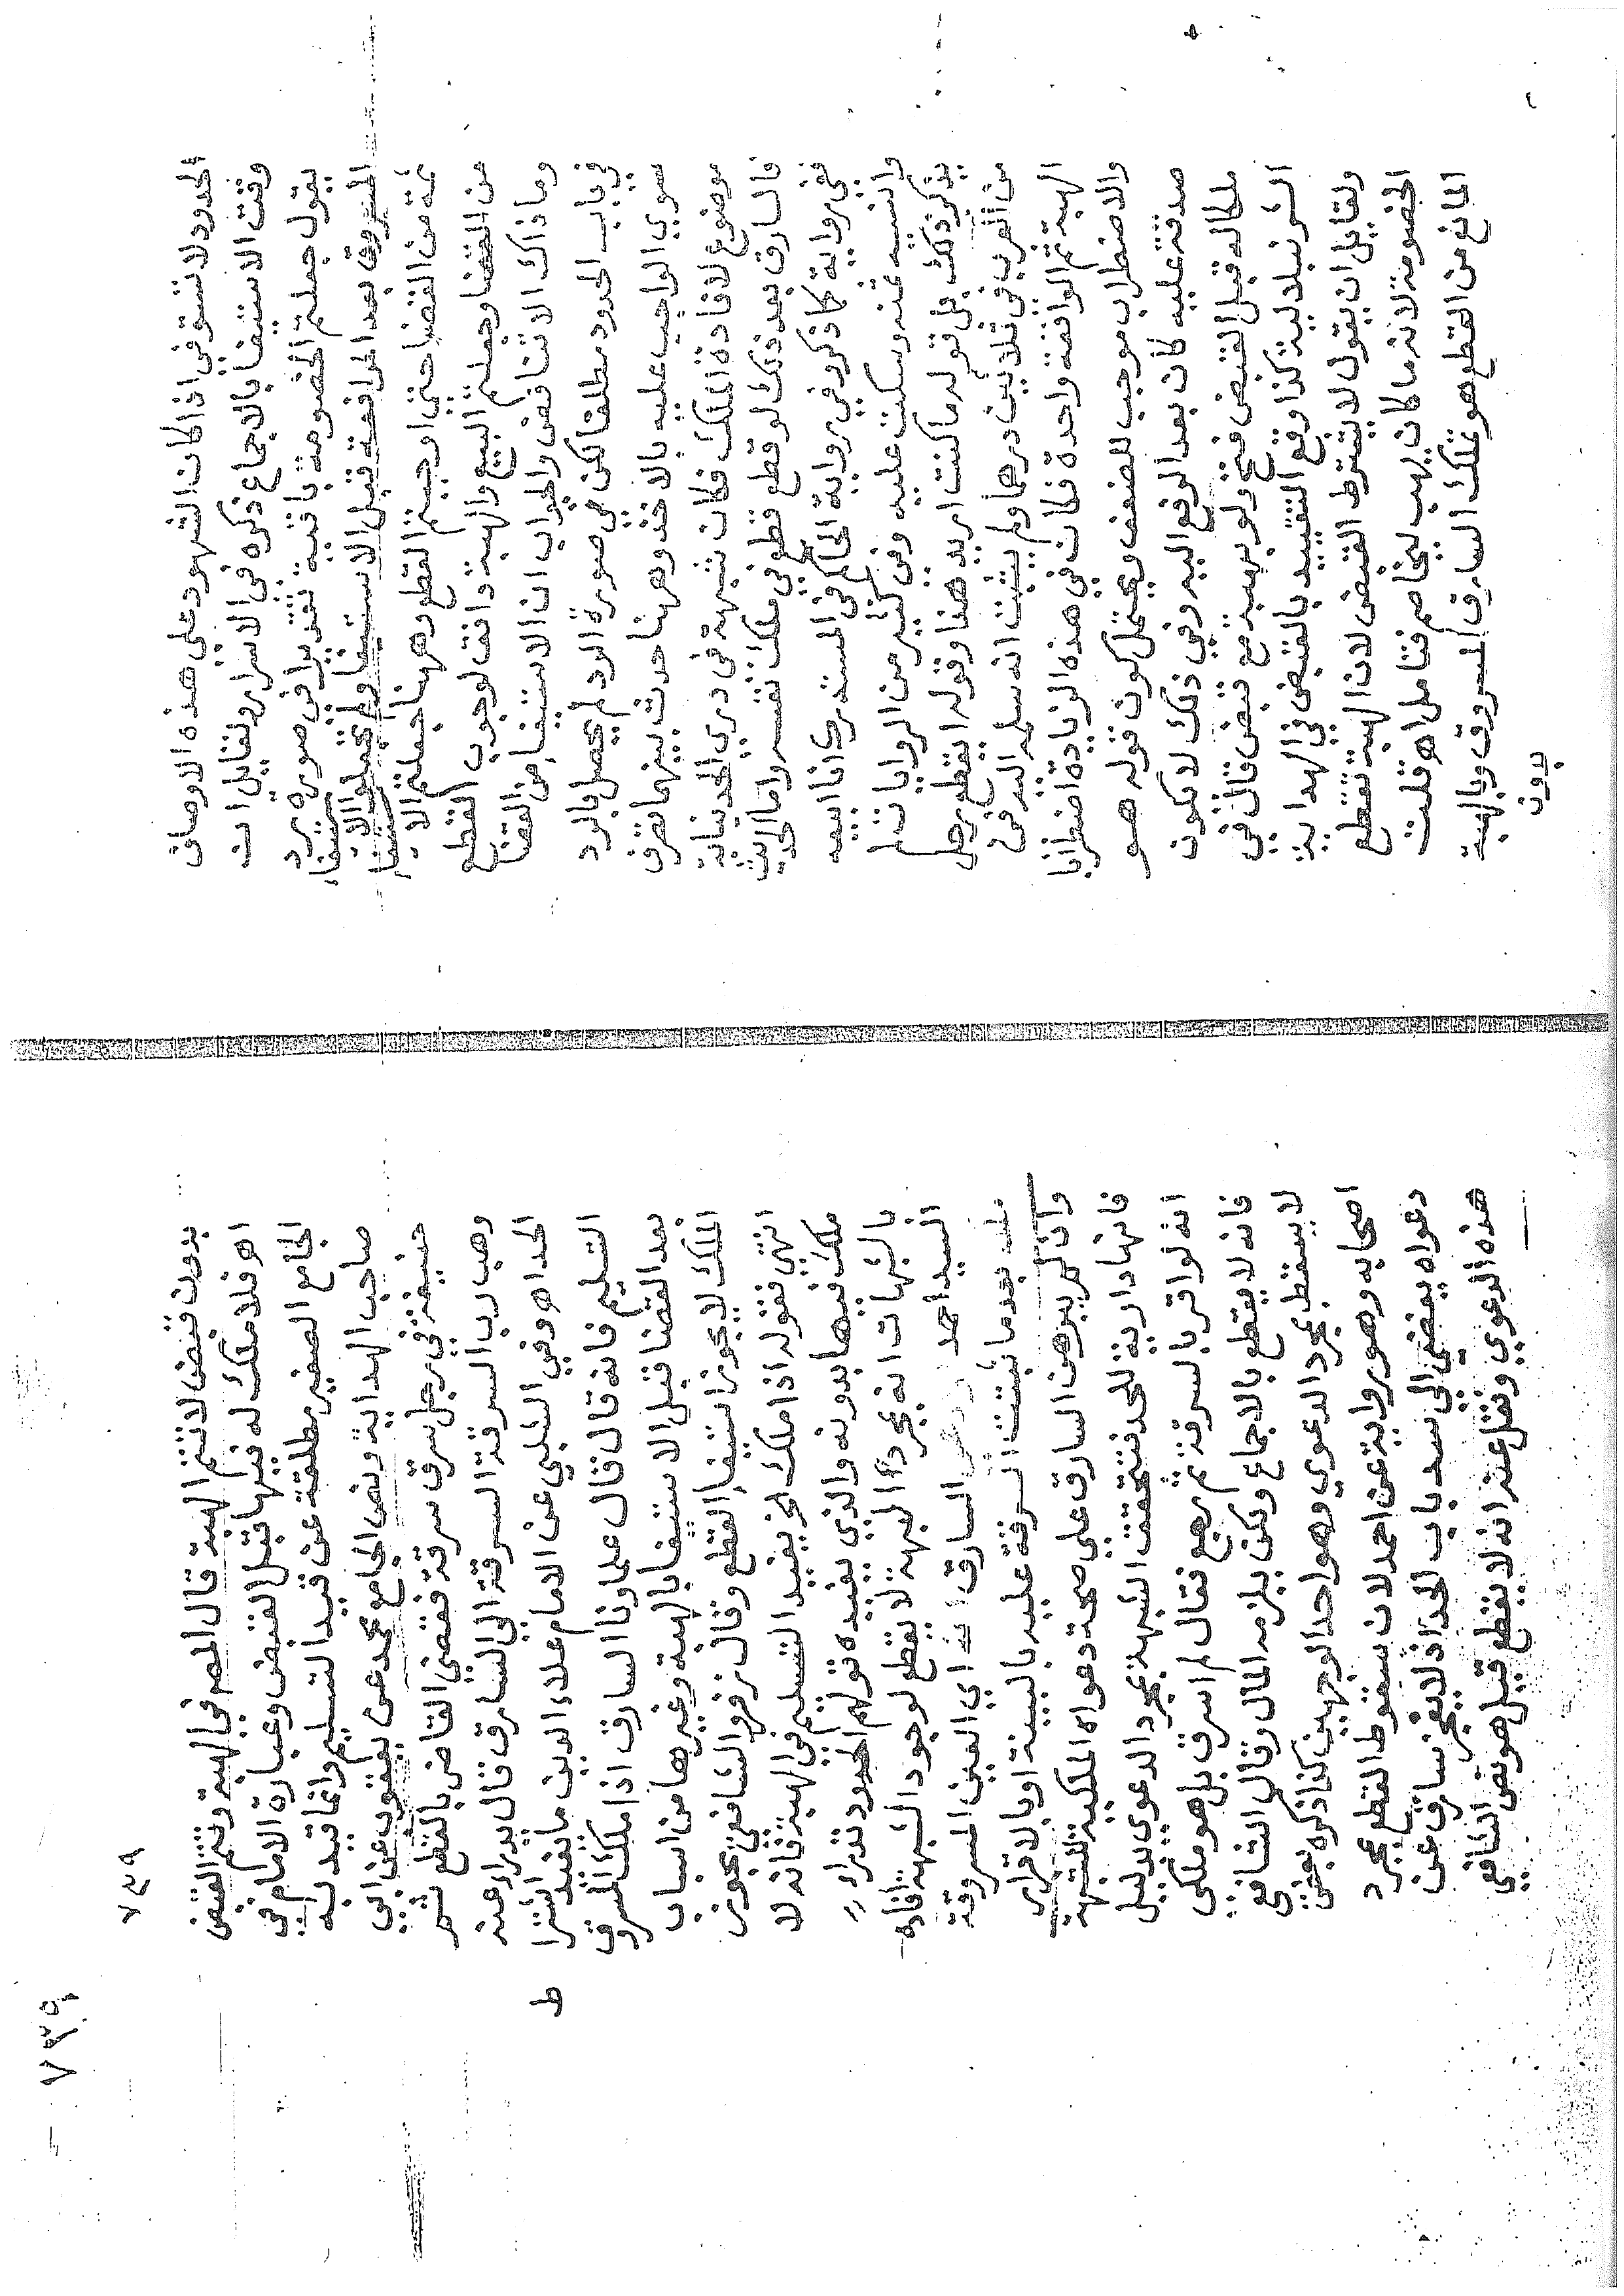 الحدود لا تستوفي اذا كان الشهود على هذه الاوصاف
وقت الاستيفا بالاجماع ذكره في الاسرار ولقايل ان
يقول جعلتم الخصومة باقية تقديرا في صورة رد
المسروق بعد المرافعة قبل الاستيفا ولم تجعلوا الاستيفا
ثمة من القضا حتى اوجبتم القطع وههنا جعلتم الاستيفا
من القضا وجعلتم البيع والهبة دافعا لوجوب القطع
وما ذاك الا تناقض والجواب ان الاستيفا من القضا
في باب الحدود مطلقا لكن في صورة الرد لم يحصل بالرد
سوى الواجب عليه بالاخذ وههنا حدث بينهما تصرف
موضوع لافادة الملك فكان شبهة في درء الحد نهاية
فالسارق بعد ذلك لو قطع قطع في ملك نفسه واما الحديث
ففي رواية كما ذكر وفي رواية الحاكم في المستدرك انا ابيعه
وانسيه ثمنه وسكت عليه وفي كثير من الروايات لم
يذكر ذلك بل قوله ما كنت اريد هذا وقوله ايقطع رجل
من العرب في ثلاثين درهما ولم يثبت انه سلمه اليه في
الهبة ثم الواقعة واحدة فكان في هذه الزيادة اضطرابا
والاضطراب موجب للضعف ويحتمل كون قوله هو
صدقة عليه كان بعد الدفع اليه وفي ذلك لا يكون
ملكا له قبل القبض فتح ولو بهبة مع قبض قال في
الشرنبلالية كذا وقع التقييد بالقبض في الهداية
ولقايل ان يقول لا يشترط القبض لان الهبة تقطع
الخصومة لانه ما كان يهب ليخاصم فتأمل اهـ قلت
المانع من القطع هو تملك السارق المسروق وبالهبة
بدون
٧٣٩
٧٣٩
بدون قبض لا تتم الهبة قال المص في الهبة وتتم بالقبض
اهـ فلا ملك له فيها قبل القبض وعبارة الامام في
الجامع الصغير مطلقة عن قيد التسليم وانما قيد به
صاحب الهداية ونص الجامع محمد عن يعقوب عن ابي
حنيفة في رجل سرق سرقة فقضى القاضي بالقطع ثم
وهب رب السرقة السرقة الى السارق قال يدراء عنه
الحد اهـ وفي الشلبي عن الامام علاء الدين ما يفيد اشتراط
التسليم فانه قال قال علماونا السارق اذا ملك المسروق
بعد القضا قبل الاستيفا بالهبة وغيرها من اسباب
الملك لا يجوز استيفا القطع وقال زفر والشافعي يجوز
انتهى فقوله اذا ملك الخ يفيد التسليم في الهبة فانه لا
ملك فيها بدونه والذي يفيده قولهم الحدود تدراء
بالشبهات انه بمجرد الهبة لا يقطع لوجود الشبهة افاده
السيد احمد ادعى السارق ا ي العين المسروقة
ملكه بعد ما ثبتت السرقة عليه بالبينة او بالاقرار
وان لم يبرهن السارق على صحة دعواه الملكية للشبهة
فانها دارية للحد فتحقق الشبهة بمجرد الدعوى بدليل
انه لو اقر بالسرقة ثم رجع فقال لم اسرق بل هو ملكي
فانه لا يقطع بالاجماع ولكن يلزمه المال وقال الشافعي
لا يسقط بمجرد الدعوى وهو احد الوجهين كذا ذكره بعض
اصحابه وهو رواية عن احمد لان سقوط القطع بمجرد
دعواه يفضي الى سد باب الحد اذ لا يعجز سارق عن
هذه الدعوى ونقل عنه انه لا يقطع قيل هو نص الشافعي
ط